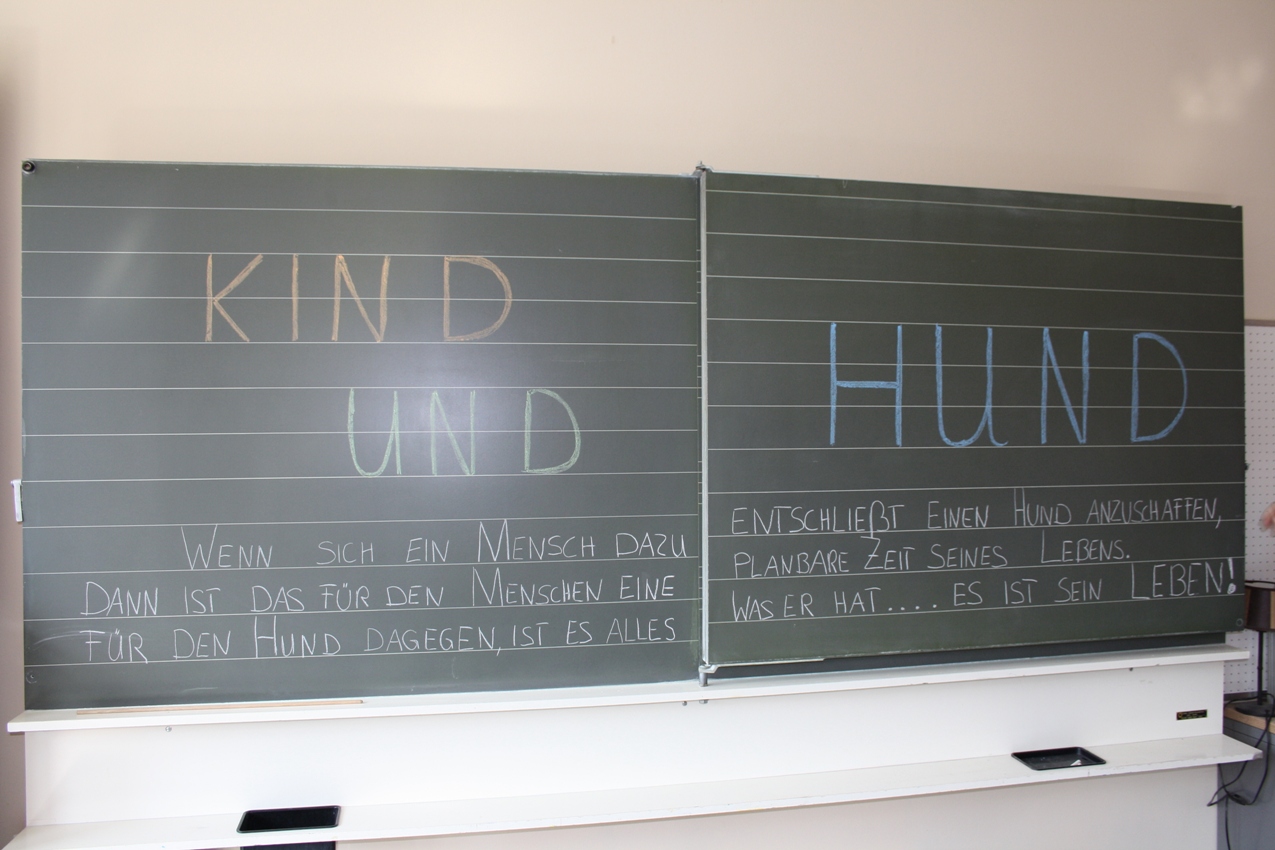 KIND
UND
HUND
WENN SICH EIN MENSCH DAZU ENTSCHLIEßT EINEN HUND ANZUSCHAFFEN,
DANN IST DAS FÜR DEN MENSCHEN EINE PLANBARE ZEIT SEINES LEBENS.
FÜR DEN HUND DAGEGEN, IST ES ALLES WAS ER HAT.... ES IST SEIN LEBEN!